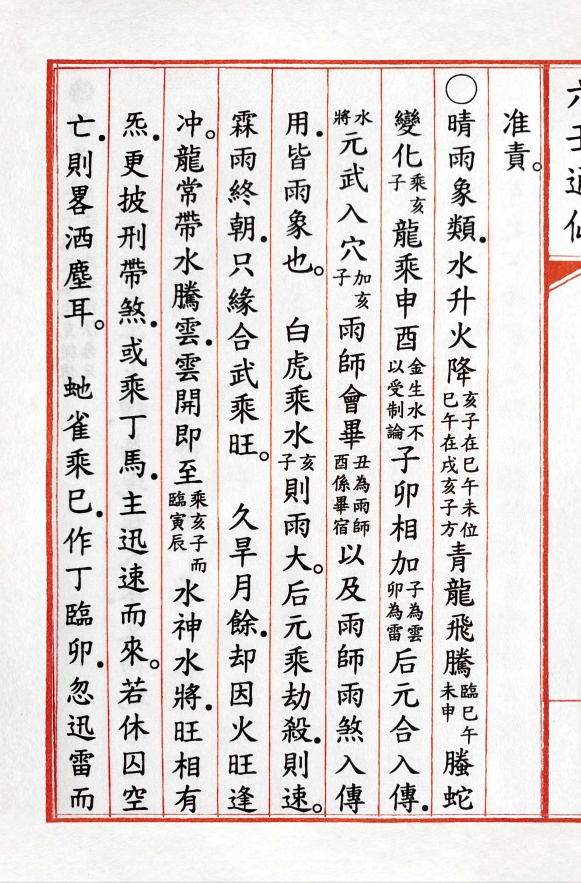 准責。
○晴雨象類．水升火降亥子在巳午未位巳午在戌亥子方青龍飛騰臨巳午未申螣蛇
變化乘亥子龍乘申酉金生水不以受制論子卯相加子為雲卯為雷后元合入傳．
水將元武入穴加亥子雨師會畢丑為雨師酉係畢宿以及雨師雨煞入傳
用．皆雨象也。　白虎乘水亥子則雨大。后元乘劫殺．則速。
霖雨終朝．只緣合武乘旺。　久旱月餘．却因火旺逢
冲。龍常帶水騰雲．雲開即至乘亥子而臨寅辰水神水將．旺相有
炁．更披刑帶煞．或乘丁馬．主迅速而來。若休囚空
亡．則畧洒塵耳。　虵雀乘巳．作丁臨卯．忽迅雷而